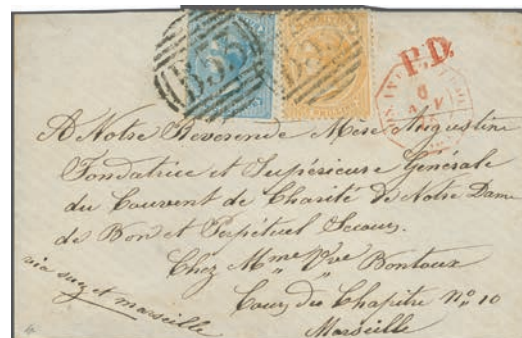 B53 B53
P.D.
A Notre Reverende Mère Augustine
Fondatrice et Supérieure Générale
du Couvent de Charité de Notre Dame
de Bon et Perpétuel Secours.
Chez Mme Vve Bontoux
Cours du Chapitre No 10
Marseille
via suez et marseille